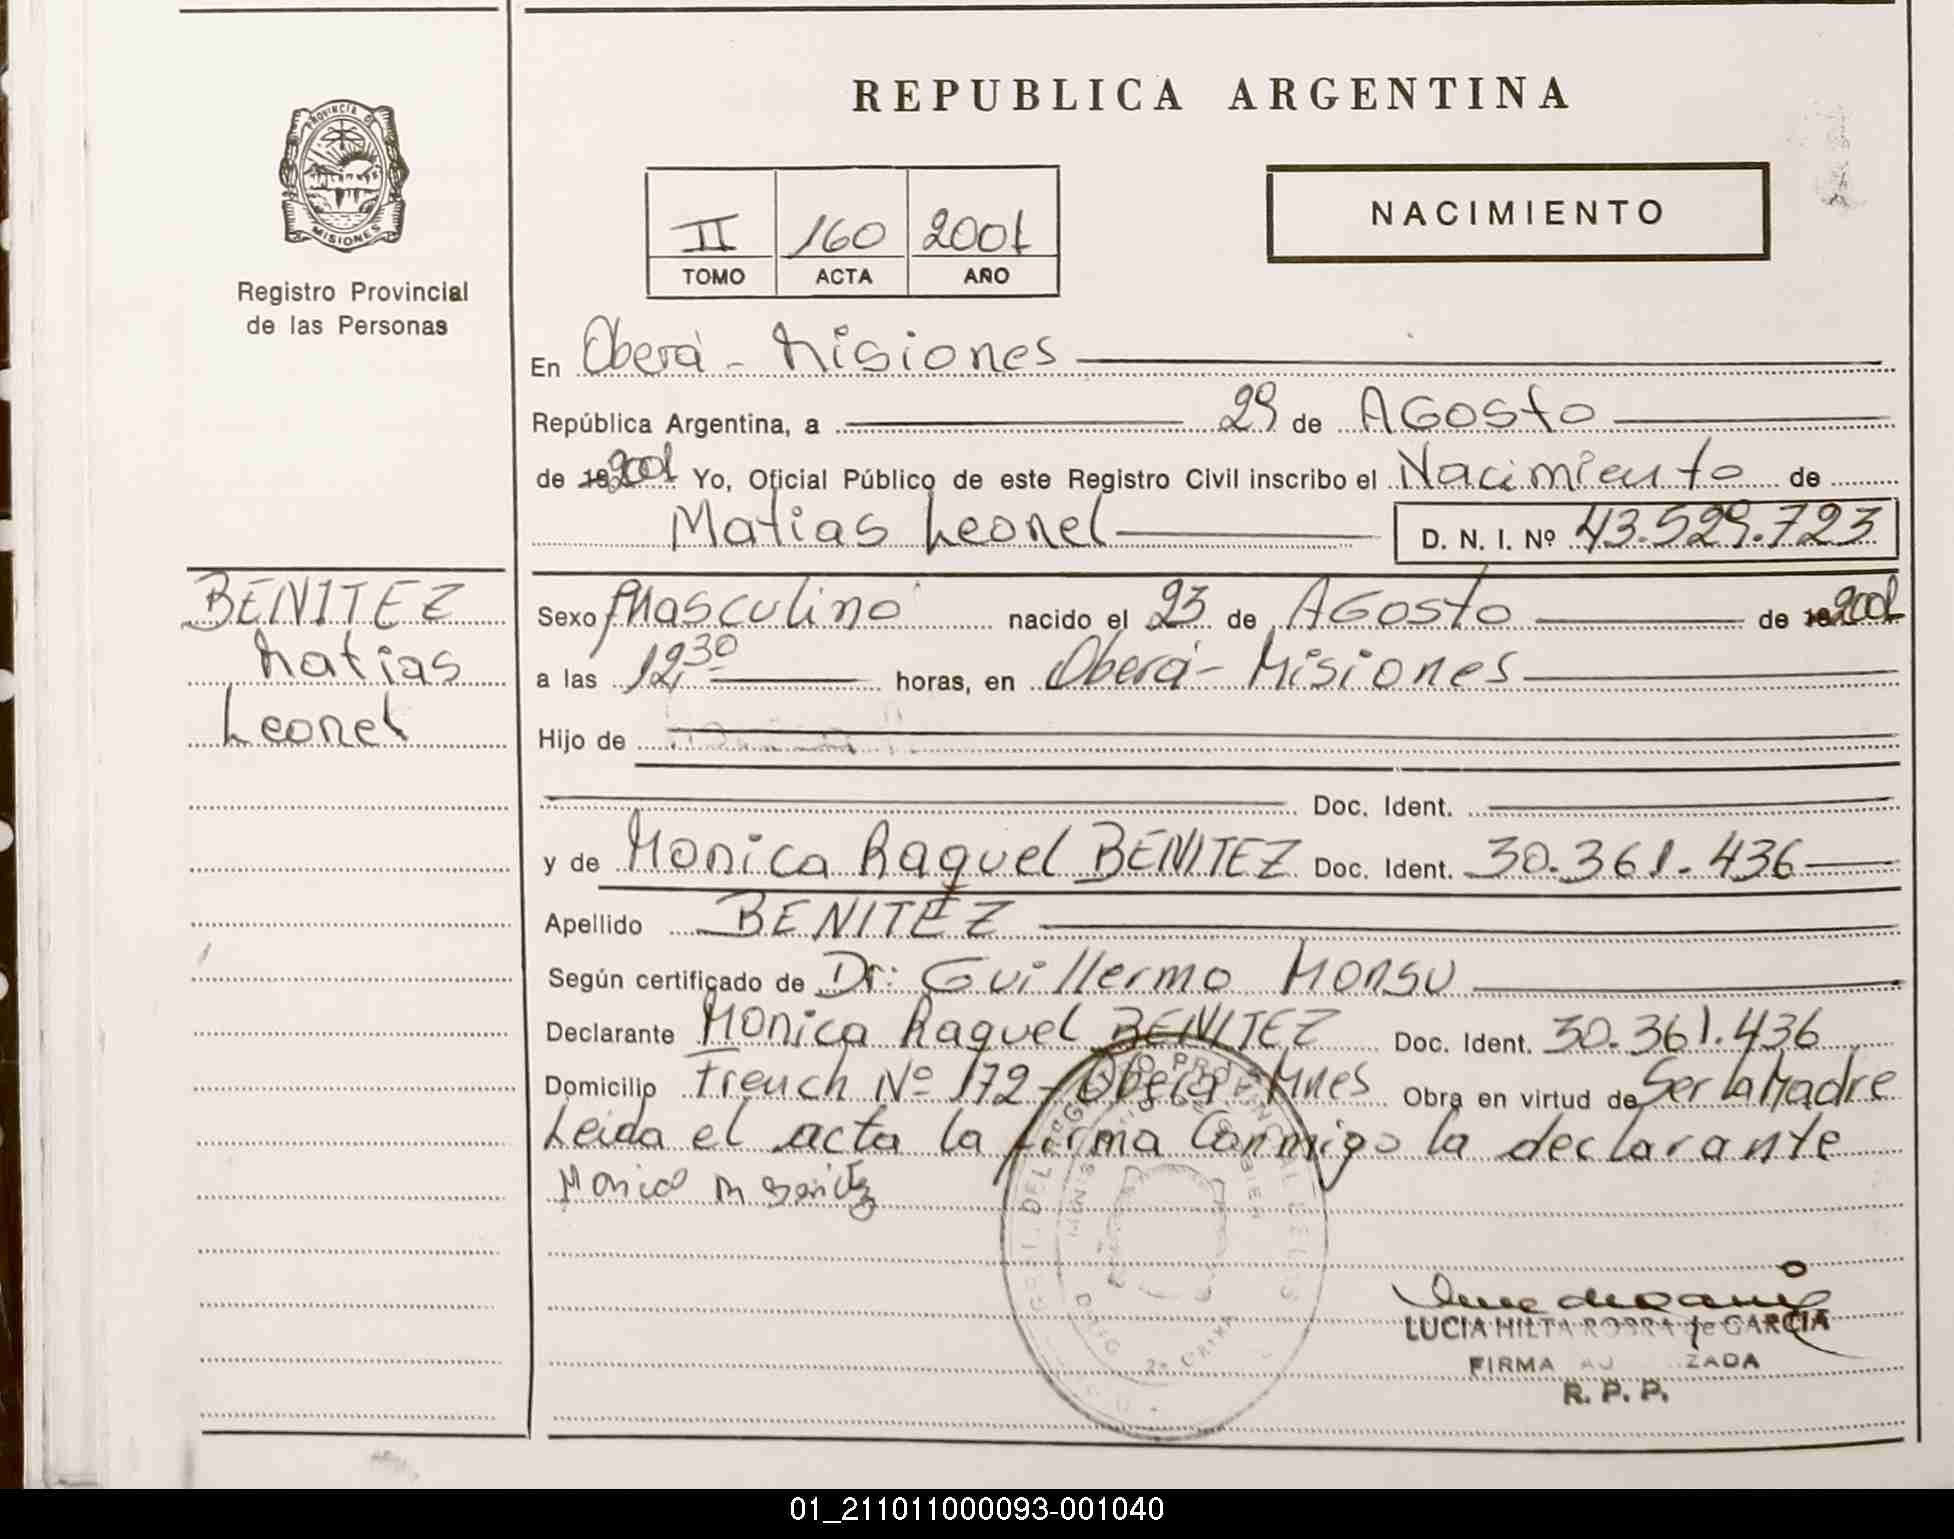 REPUBLICA ARGENTINA
PROVINCIA D
MISIONES
Registro Provincial
de las Personas
II 160 2001
TOMO ACTA AÑO
NACIMIENTO
En Oberá - Misiones
República Argentina, a 29 de Agosto
de 19 2001 Yo, Oficial Público de este Registro Civil inscribo el Nacimiento de
Matias Leonel D. N. I. Nº 43.529.723
BENITEZ
Matias
Leonel
Sexo Masculino nacido el 23 de Agosto de 19 2001
a las 12,30 horas, en Oberá - Misiones
Hijo de
Doc. Ident.
y de Monica Raquel BENITEZ Doc. Ident. 30.361.436
Apellido BENITEZ
Según certificado de Dr: Guillermo Monsu
Declarante Monica Raquel BENITEZ Doc. Ident. 30.361.436
Domicilio French Nº 172 - Oberá Mnes Obra en virtud de Ser la Madre
Leida el acta la firma Conmigo la declarante
Monica
LUCIA HILTA de GARCIA
FIRMA
R. P. P.
01_211011000093-001040